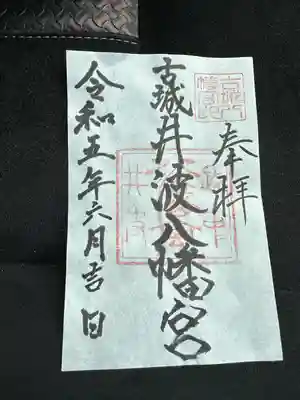 奉拝
古城井波八幡宮
令和五年六月吉日